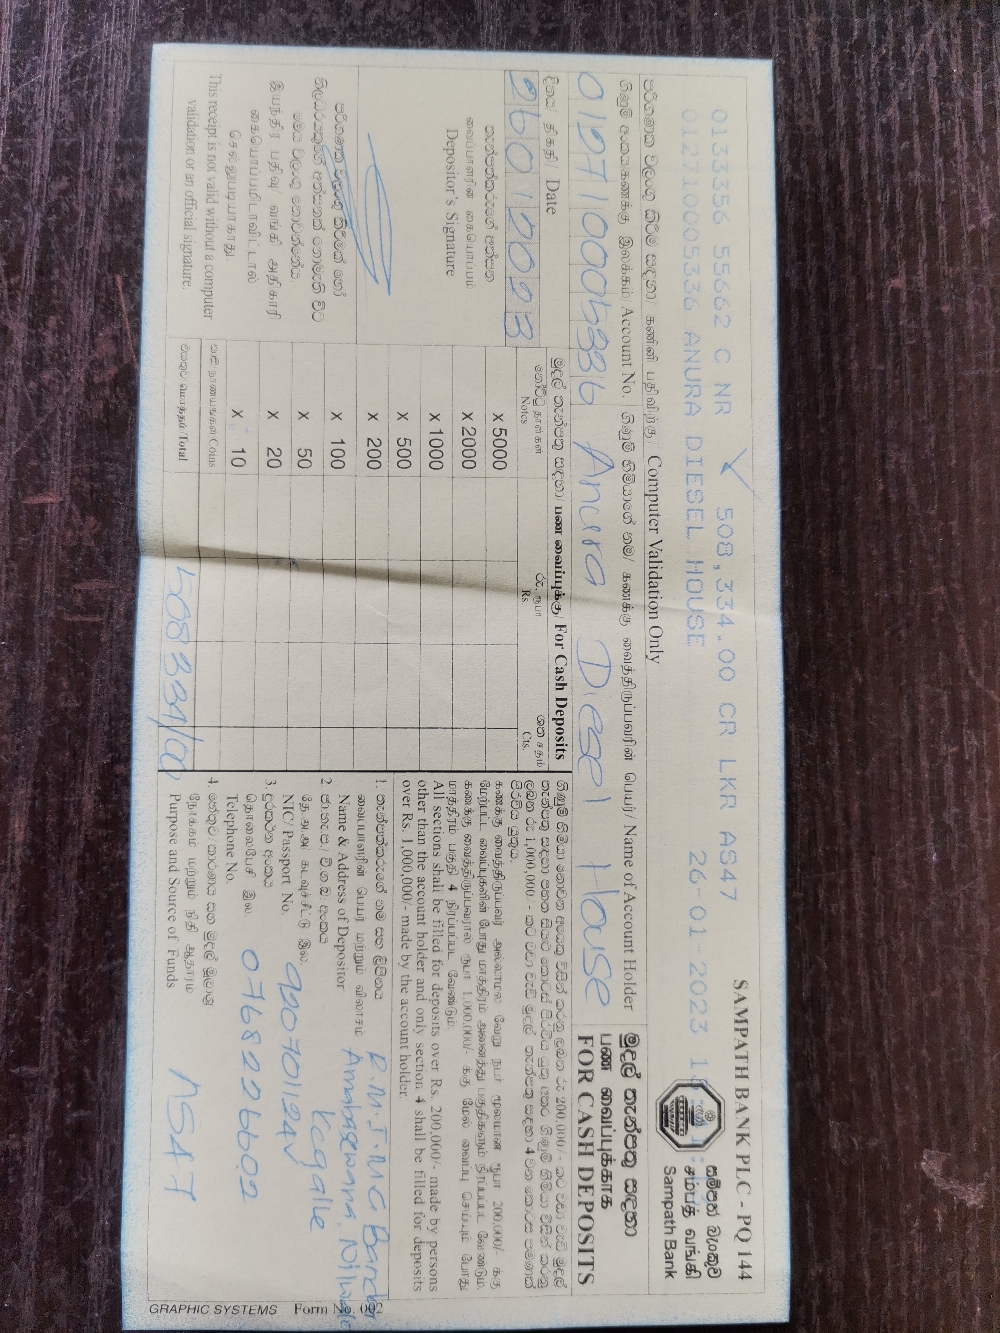 SAMPATH BANK PLC - PQ 144
013356 55662 C NR 508,334.00 CR LKR AS47
0127100005336 ANURA DIESEL HOUSE 26-01-2023 1
සම්පත් බැංකුව
சம்பத் வங்கி
Sampath Bank
පරිගණක වලංගු කිරීම සඳහා/ கணினி பதிவிற்கு/ Computer Validation Only
ගිණුම් අංකය/கணக்கு இலக்கம்/Account No. ගිණුම් හිමියාගේ නම/ கணக்கு வைத்திருப்பவரின் பெயர்/ Name of Account Holder
මුදල් තැන්පතු සඳහා
பண வைப்புக்காக
FOR CASH DEPOSITS
0127100005336 Anura Diesel House
දිනය/ திகதி/ Date
26012023
තැන්පත්කරුගේ අත්සන
வைப்பாளரின் கையொப்பம்
Depositor's Signature
පරිගණක වලංගු කිරීමක් හෝ
නිලධරයකුගේ අත්සනක් නොමැති විට
මෙය වලංගු නොවන්නේය.
இயந்திர பதிவு/ வங்கி அதிகாரி
கையொப்பமிடாவிட்டால்
செல்லுபடியாகாது.
This receipt is not valid without a computer
validation or an official signature.
මුදල් තැන්පතු සඳහා/ பண வைப்புக்கு/ For Cash Deposits
නෝට්ටු/தாள்கள் Notes රු. ரூபா Rs. ශත சதம் Cts.
X 5000
X 2000
X 1000
X 500
X 200
X 100
X 50
X 20
X 10
කාසි/நாணயங்கள்/Coins
එකතුව/மொத்தம்/Total 508334/00
கணக்கு வைத்திருப்பவர் அல்லாமல் வேறு நபர் மூலமான ரூபா 200,000/- க்கு
மேற்பட்ட வைப்புகளின் போது மாத்திரம் அனைத்து பகுதிகளும் நிரப்பப்பட வேண்டும்.
கணக்கு வைத்திருப்பவரால் ரூபா 1,000,000/- க்கு மேல் வைப்பு செய்யும் போது
மாத்திரம் பகுதி 4 நிரப்பப்பட வேண்டும்.
All sections shall be filled for deposits over Rs. 200,000/- made by persons
other than the account holder and only section 4 shall be filled for deposits
over Rs. 1,000,000/- made by the account holder.
1. තැන්පත්කරුගේ නම සහ ලිපිනය
வைப்பாளரின் பெயர் மற்றும் விலாசம்
Name & Address of Depositor
R.M.J.M.C Bandar
Ambagewana, Nilwala
Kegalle
2. ජා.හැ.ප./ වි.ග.බ. අංකය
தே.அ.அ. கடவுச்சீட்டு இல.
NIC/ Passport No. 900701124V
3. දුරකථන අංකය
தொலைபேசி இல.
Telephone No. 0768226602
4. හේතුව/ කාරණය සහ මුදල් මූලාශ්‍ර
நோக்கம் மற்றும் நிதி ஆதாரம்
Purpose and Source of Funds
GRAPHIC SYSTEMS Form No. 002